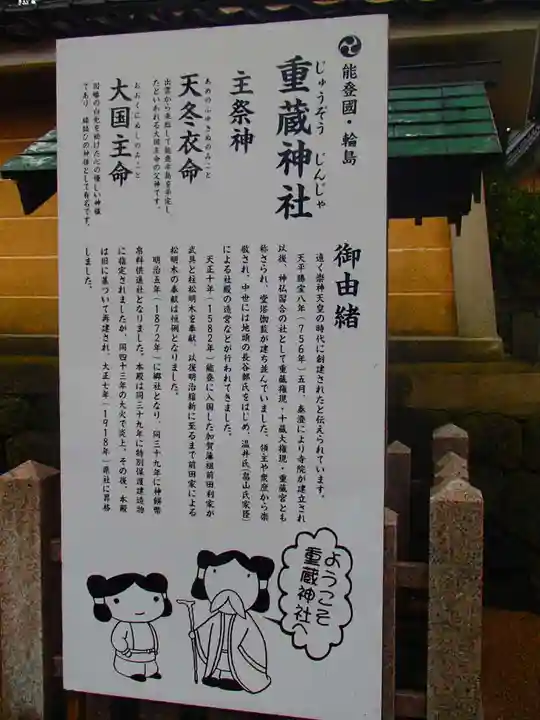 能登國・輪島
じゅうぞう じんじゃ
重蔵神社
主祭神
あめのふゆきぬのみこと
天冬衣命
出雲から来臨して能登半島を平定し
たといわれる大国主命の父神です。
おおくにぬしのみこと
大国主命
因幡の白兎を助けた心の優しい神様
であり、縁結びの神様として有名です。
御由緒
遠く崇神天皇の時代に創建されたと伝えられています。
天平勝宝八年（756年）五月、泰澄により寺院が建立され
以後、神仏習合の社として重蔵権現・十蔵大権現・重蔵宮とも
称さられ、堂塔伽藍が建ち並んでいました。領主や衆庶から崇
敬され、中世には地頭の長谷部氏をはじめ、温井氏（畠山氏家臣）
による社殿の造営などが行われてきました。
天正十年（1582年）能登に入国した加賀藩祖前田利家が
武具と柱松明木を奉献、以後明治維新に至るまで前田家による
松明木の奉献は恒例となりました。
明治五年（1872年）に郷社となり、同三十九年に神饌幣
帛料供進社となりました。本殿は同三十九年に特別保護建造物
に指定されましたが、同四十三年の大火で炎上。その後、本殿
は旧に基づいて再建され、大正七年（1918年）県社に昇格
しました。
ようこそ
重蔵神社へ